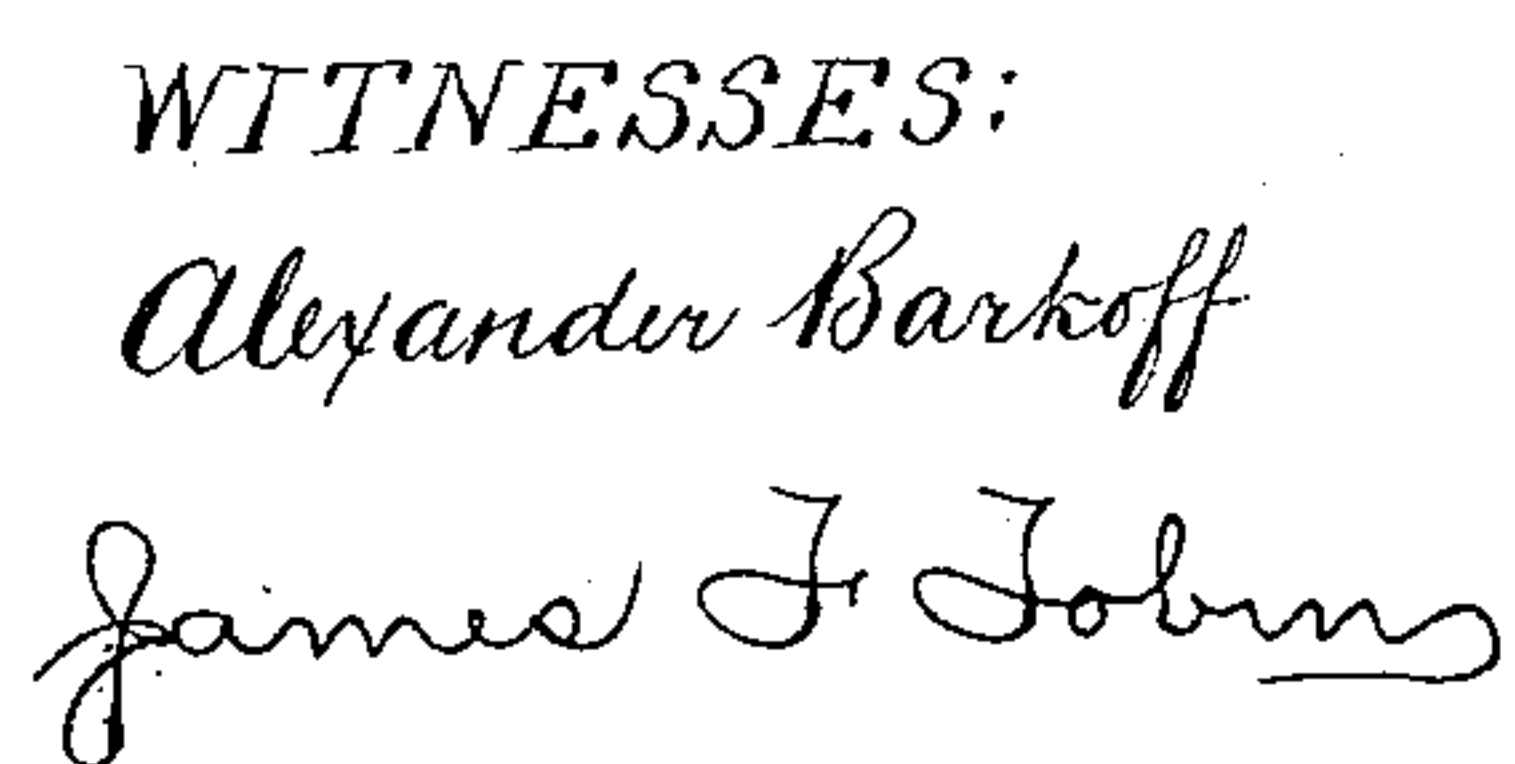 WITNESSES:
Alexander Barkoff
James F Tobin